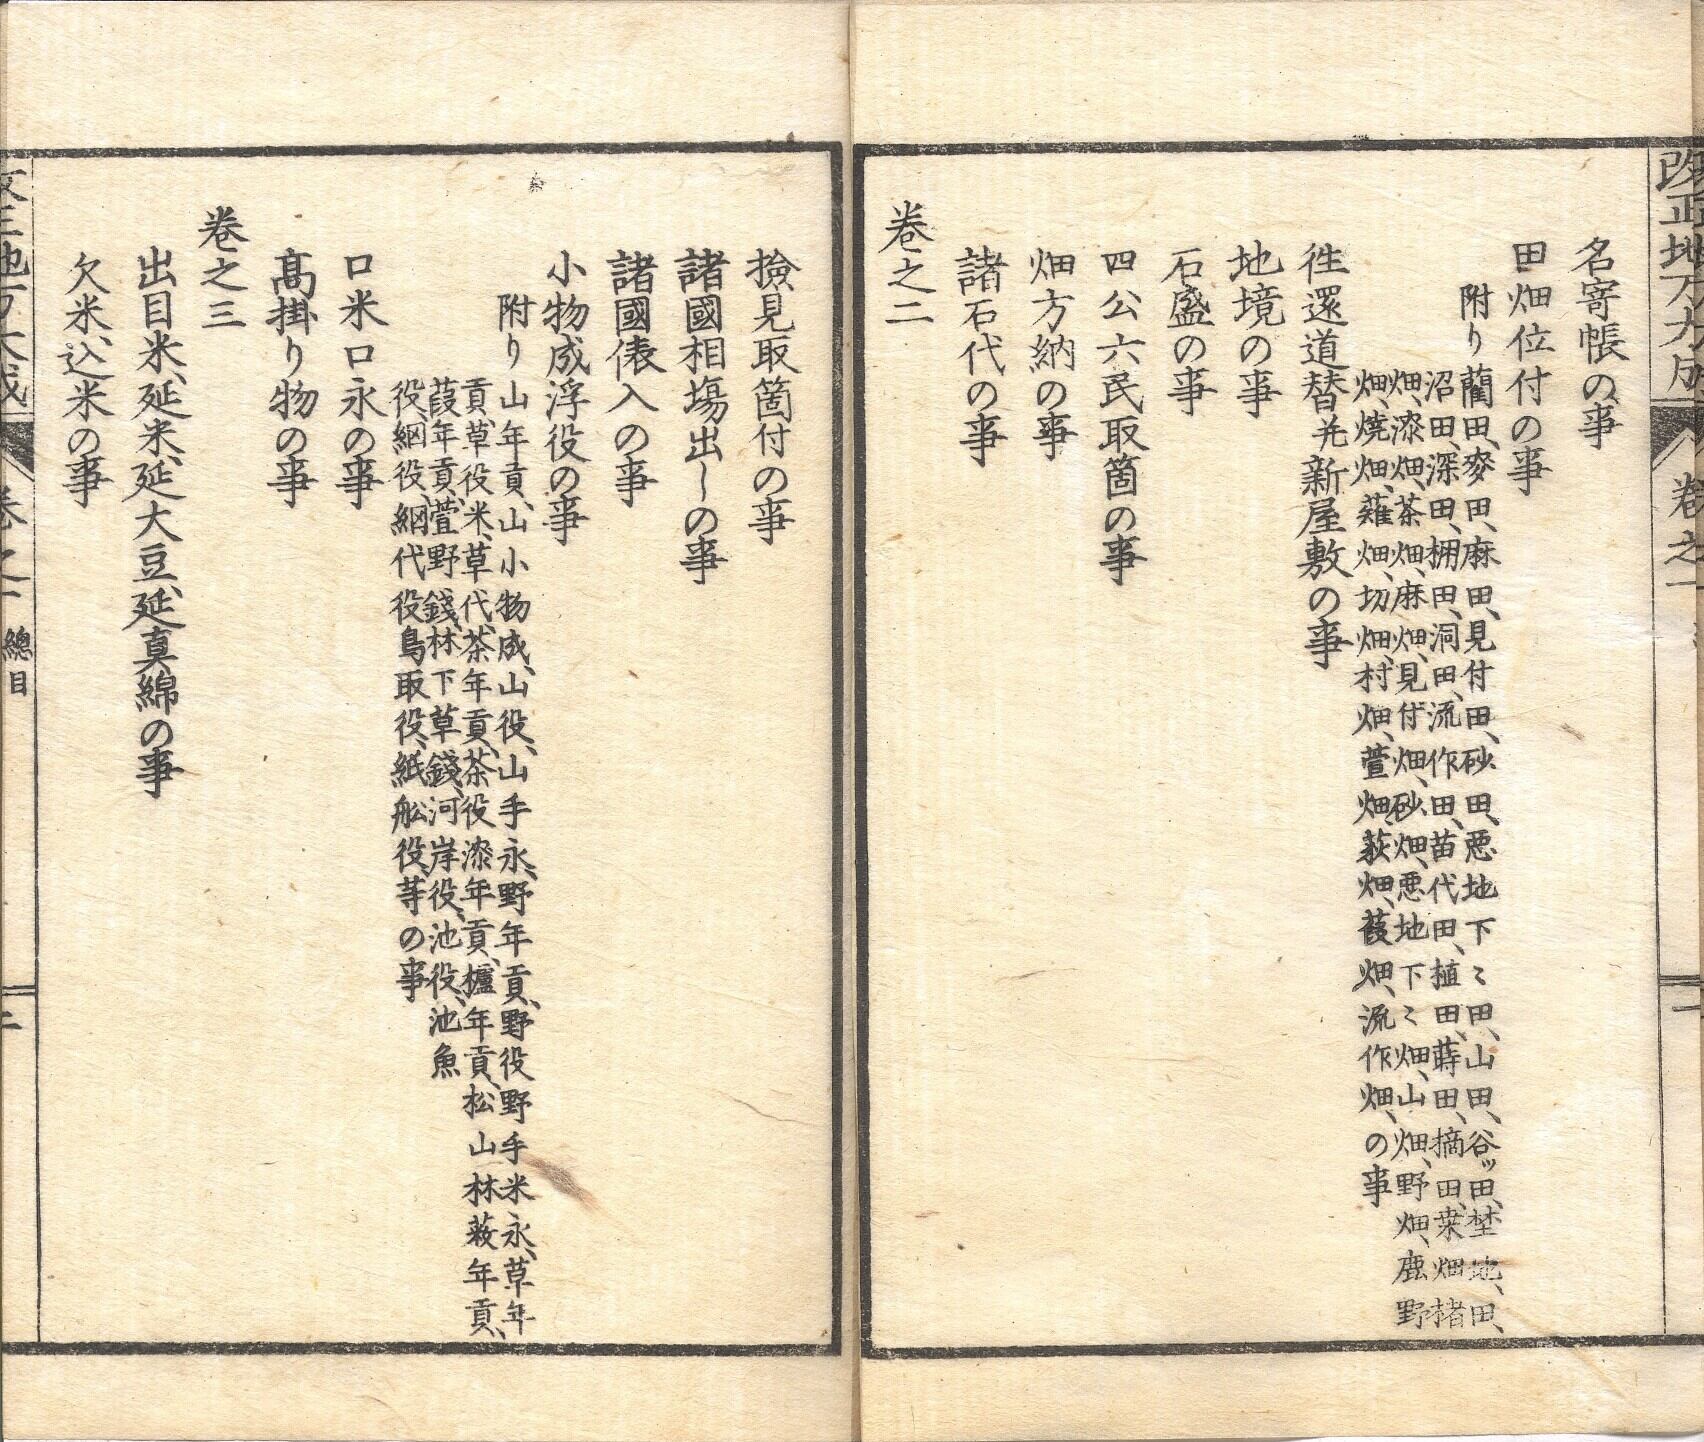 改正地方大成
卷之一
名寄帳の事
田畑位付の事
附り藺田、麥田、麻田、見付田、砂田、悪地下〻田、山田、谷ッ田、埜地、田、
沼田、深田、棚田、洞田、流作田、苗代田、植田、蒔田、摘田、桒畑楮
畑、漆畑、茶畑、麻畑、見付畑、砂畑、悪地下〻畑、山畑、野畑、鹿野
畑、焼畑、薙畑、切畑、村畑、萱畑、萩畑、葭畑、流作畑、の事
徃還道替并新屋敷の事
地境の事
石盛の事
四公六民取箇の事
畑方納の事
諸石代の事
卷之二
撿見取箇付の事
諸國相塲出しの事
諸國俵入の事
小物成浮役の事
附り山年貢、山小物成、山役、山手永、野年貢、野役野手米永、草年
貢、草役米、草代、茶年貢、茶役漆年貢、櫨年貢、松山林薮年貢、
葭年貢、萱野錢、林下草錢、河岸役、池役、池魚
役、網役、網代役鳥取役、紙舩役、等の事
口米口永の事
髙掛り物の事
卷之三
出目米、延米、延大豆、延真綿の事
欠米、込米の事
改正地方大成
卷之一
總目
二